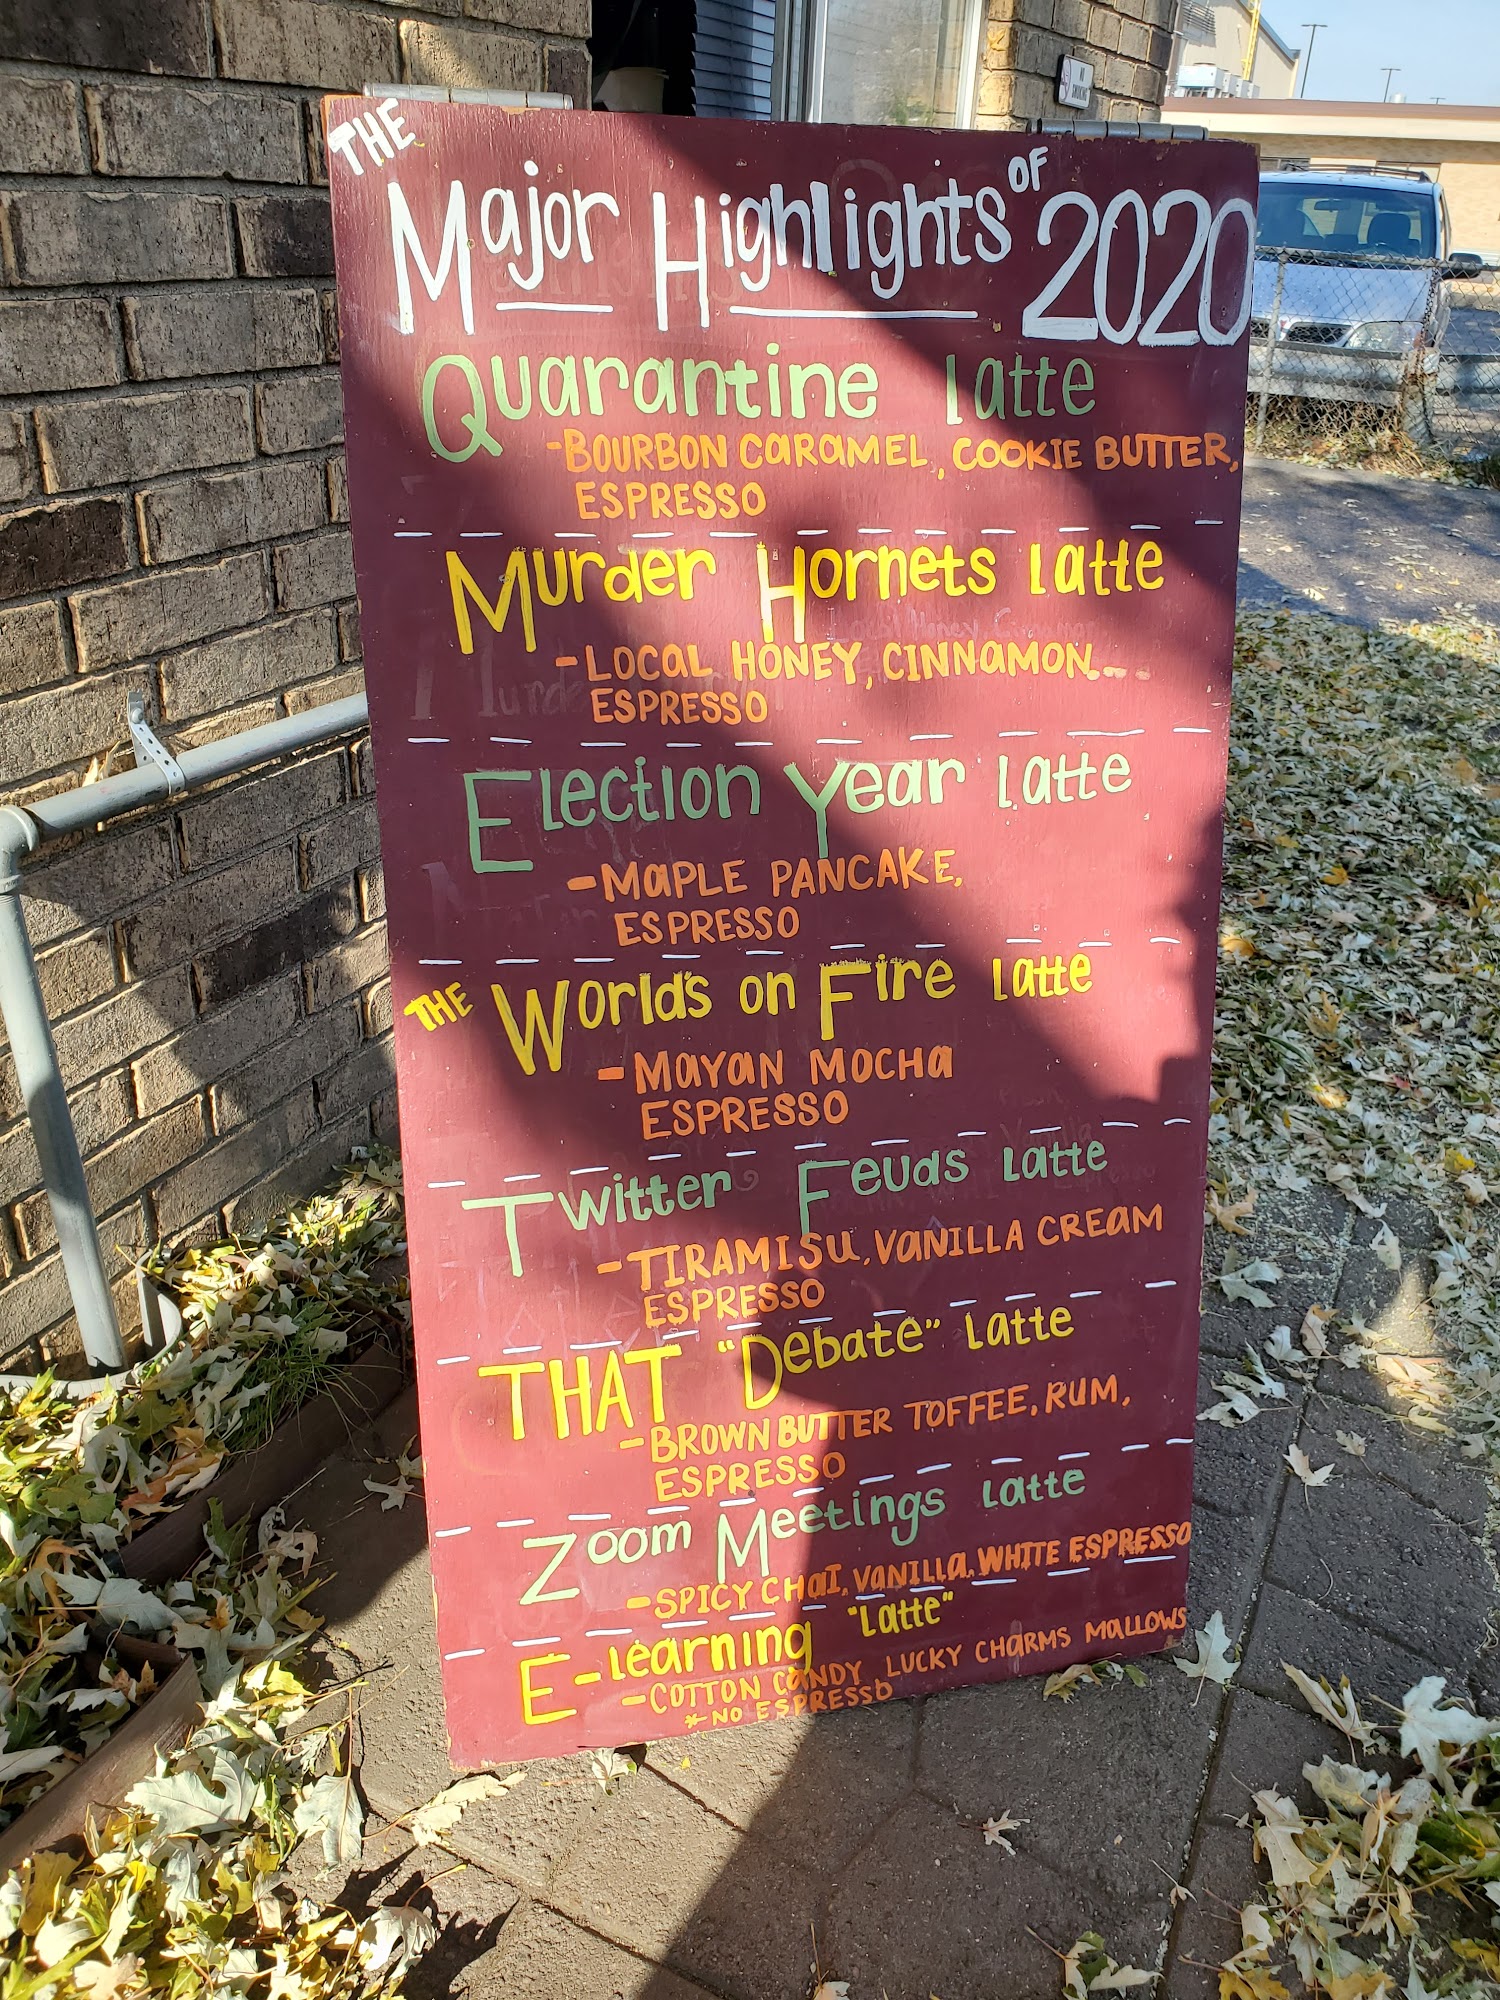 THE
Major Highlights OF 2020
Quarantine Latte
-BOURBON CARAMEL, COOKIE BUTTER,
ESPRESSO
Murder Hornets Latte
-LOCAL HONEY, CINNAMON
ESPRESSO
Election Year Latte
-MAPLE PANCAKE,
ESPRESSO
THE World's on Fire Latte
-MAYAN MOCHA
ESPRESSO
Twitter Feuds Latte
-TIRAMISU, VANILLA CREAM
ESPRESSO
THAT "Debate" Latte
-BROWN BUTTER TOFFEE, RUM,
ESPRESSO
Zoom Meetings Latte
-SPICY CHAI, VANILLA, WHITE ESPRESSO
E-Learning "Latte"
-COTTON CANDY, LUCKY CHARMS MALLOWS
*NO ESPRESSO